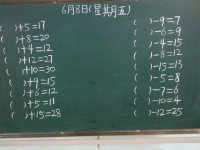 6月8日(星期五)
( )+5=17
( )+8=20
( )+4=12
( )+12=27
( )+10=30
( )+9=15
( )+6=12
( )+5=11
( )+15=28
( )-9=7
( )-6=9
( )-4=15
( )-8=12
( )-15=13
( )-5=8
( )-7=6
( )-10=4
( )-12=25